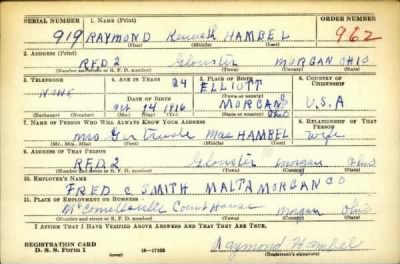 SERIAL NUMBER 1. NAME (Print) ORDER NUMBER
919 RAYMOND Kenneth HAMBEL 962
(First) (Middle) (Last)
2. ADDRESS (Print)
R.F.D. 2 Glouster MORGAN OHIO
(Number and street or R. F. D. number) (Town) (County) (State)
3. TELEPHONE 4. AGE IN YEARS 5. PLACE OF BIRTH 6. COUNTRY OF CITIZENSHIP
NONE 24 ELLIOTT
DATE OF BIRTH (Town or county)
14 1916 MORGAN U.S.A
(Exchange) (Number) (Mo.) (Day) (Yr.) (State or country)
7. NAME OF PERSON WHO WILL ALWAYS KNOW YOUR ADDRESS 8. RELATIONSHIP OF THAT PERSON
Mrs Gertrude Mae HAMBEL Wife
(Mr., Mrs., Miss) (First) (Middle) (Last)
9. ADDRESS OF THAT PERSON
R.F.D. 2 Glouster Morgan Ohio
(Number and street or R. F. D. number) (Town) (County) (State)
10. EMPLOYER'S NAME
FRED C SMITH MALTA MORGAN CO
11. PLACE OF EMPLOYMENT OR BUSINESS
McConnelsville Court House Morgan Ohio
(Number and street or R. F. D. number) (Town) (County) (State)
I AFFIRM THAT I HAVE VERIFIED ABOVE ANSWERS AND THAT THEY ARE TRUE.
REGISTRATION CARD
D. S. S. Form 1 16—17105 Raymond Hambel
(Registrant's signature)